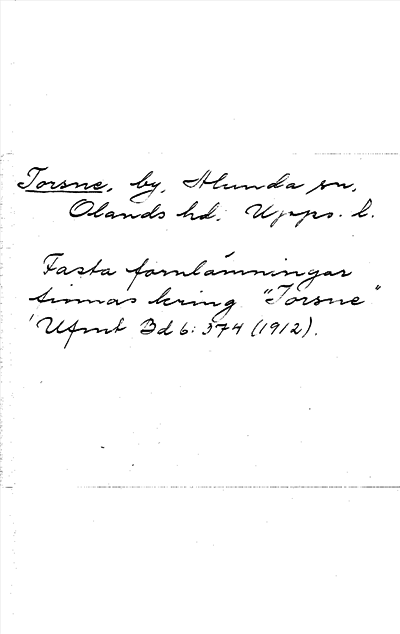 Torsne, by, Alunda sn,
Olands hd. Upps. l.
Fasta fornlämningar
finnas kring "Torsne"
Ufmt Bd 6: 574 (1912).